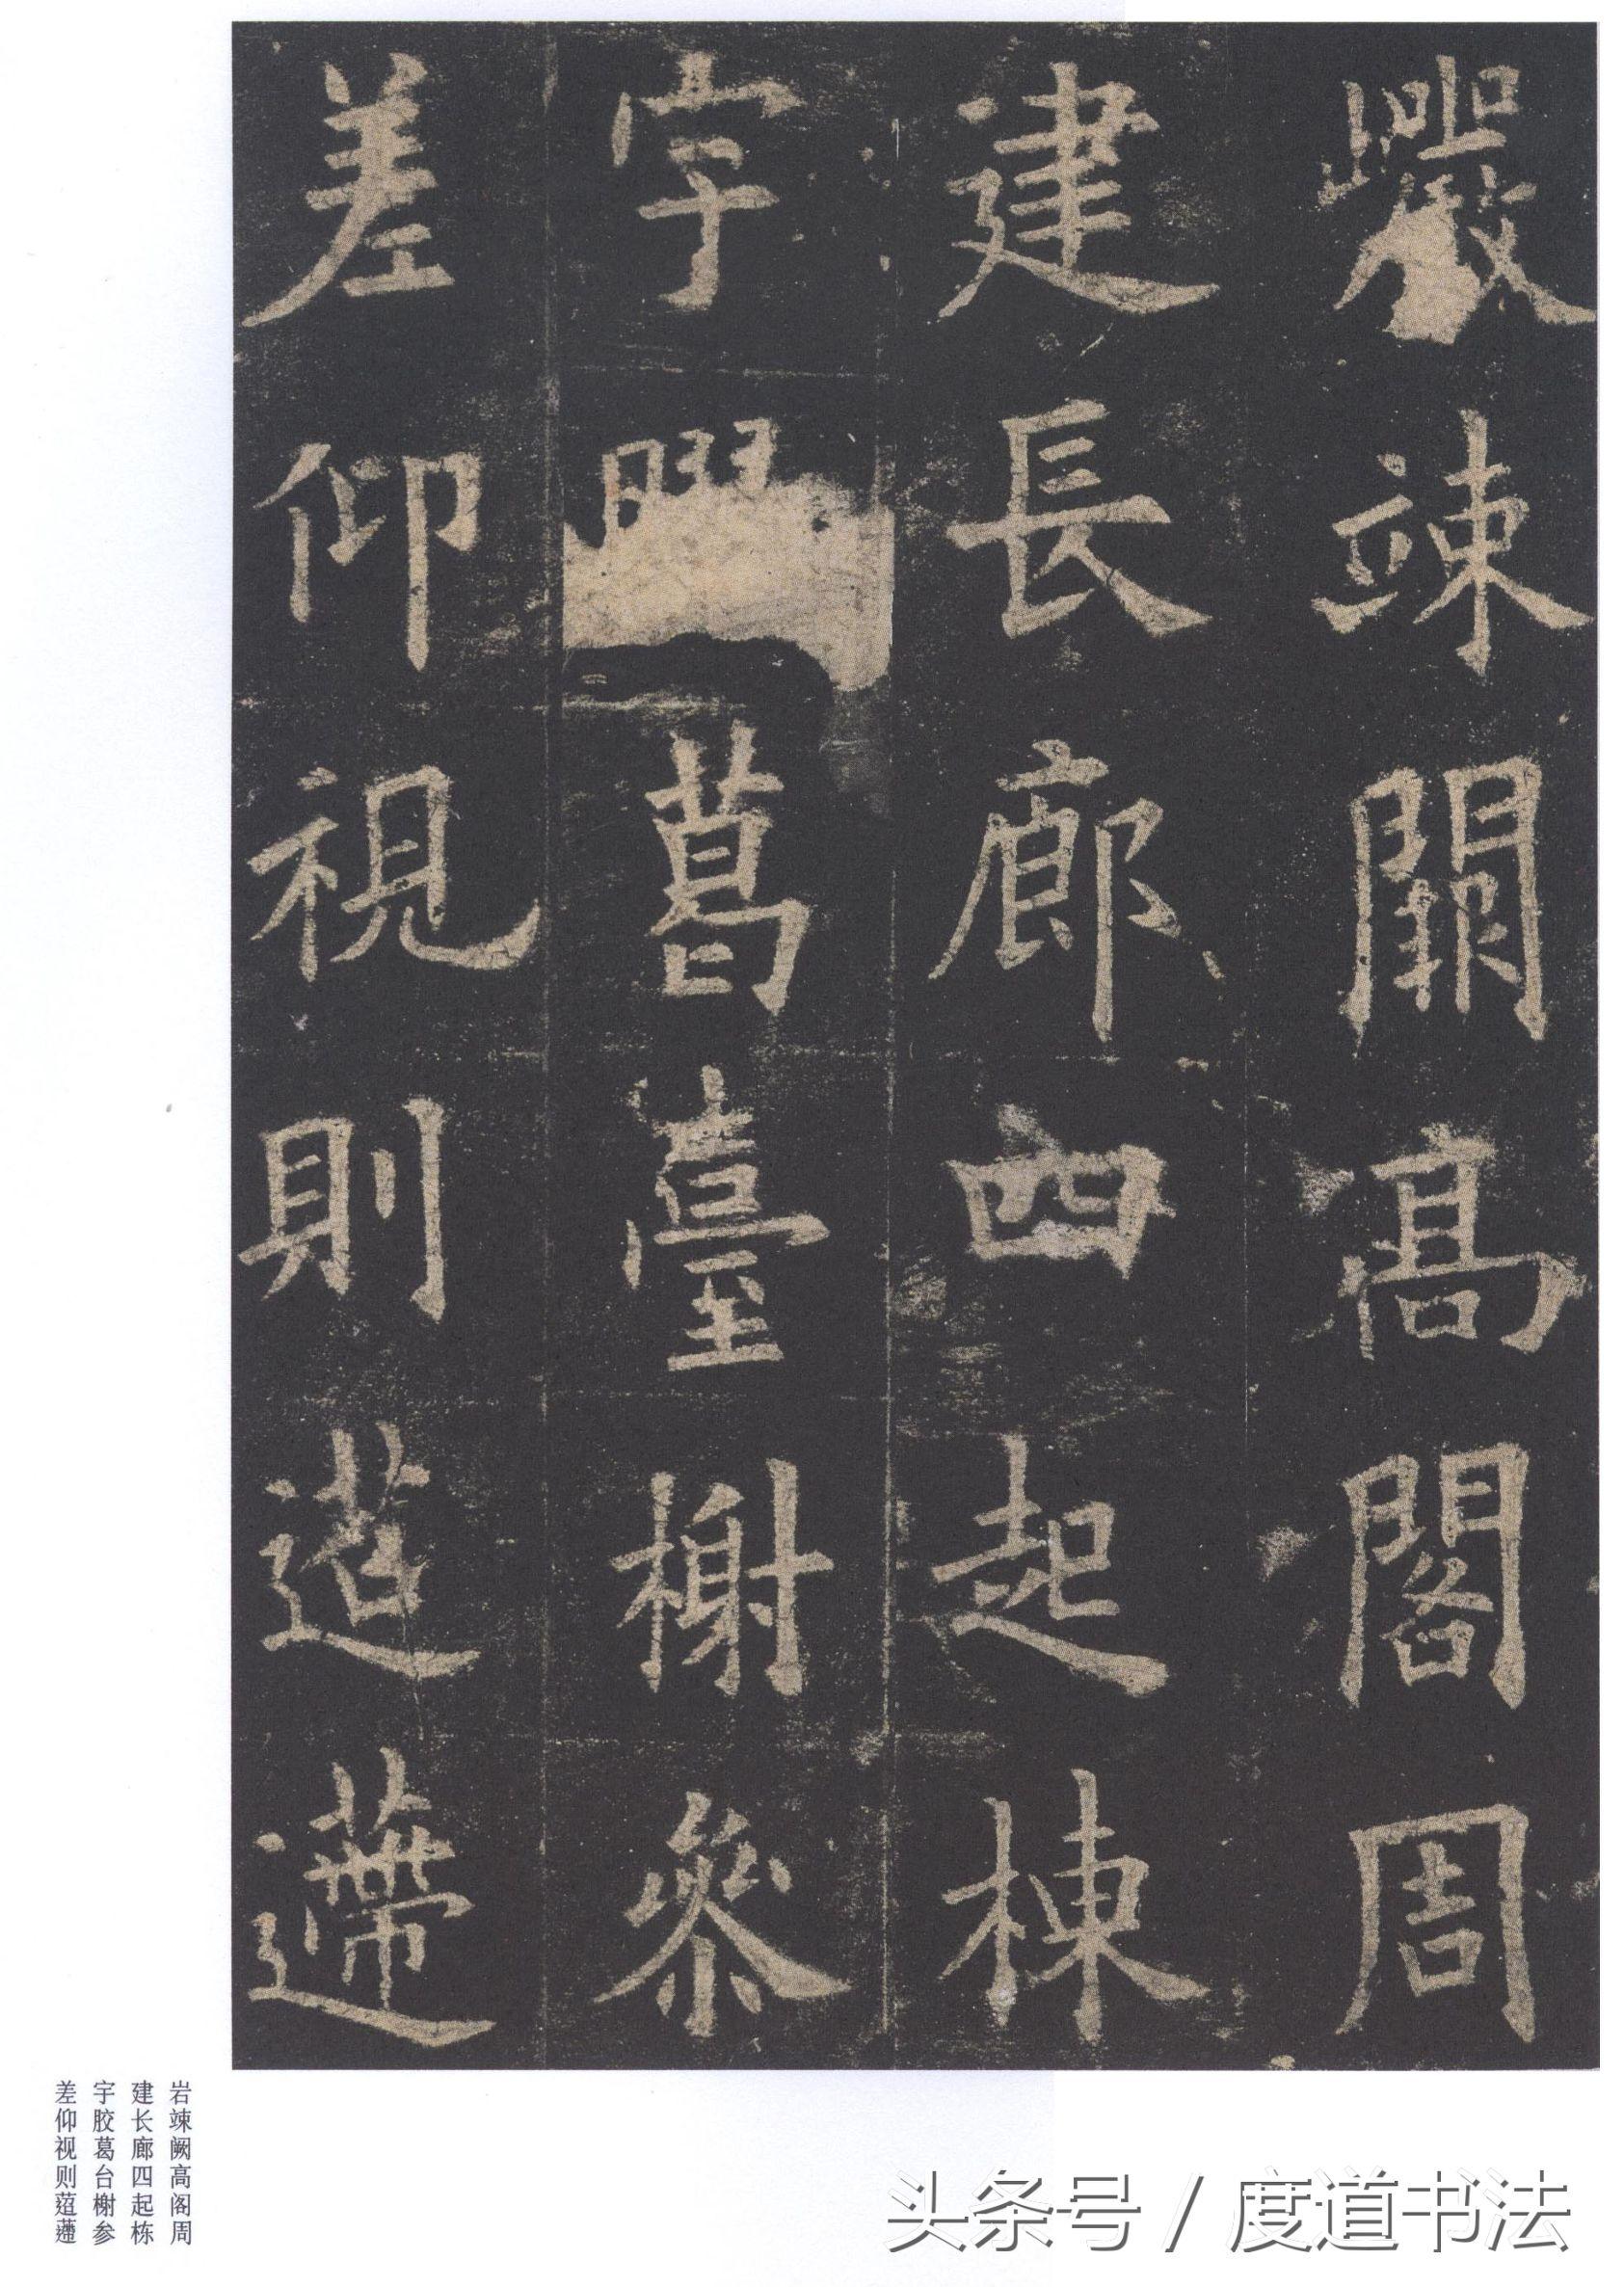 巖竦闕高閣周
建長廊四起棟
宇葛臺榭參
差仰視則迢遰
岩竦阙高阁周
建长廊四起栋
宇胶葛台榭参
差仰视则
头条号 / 度道书法